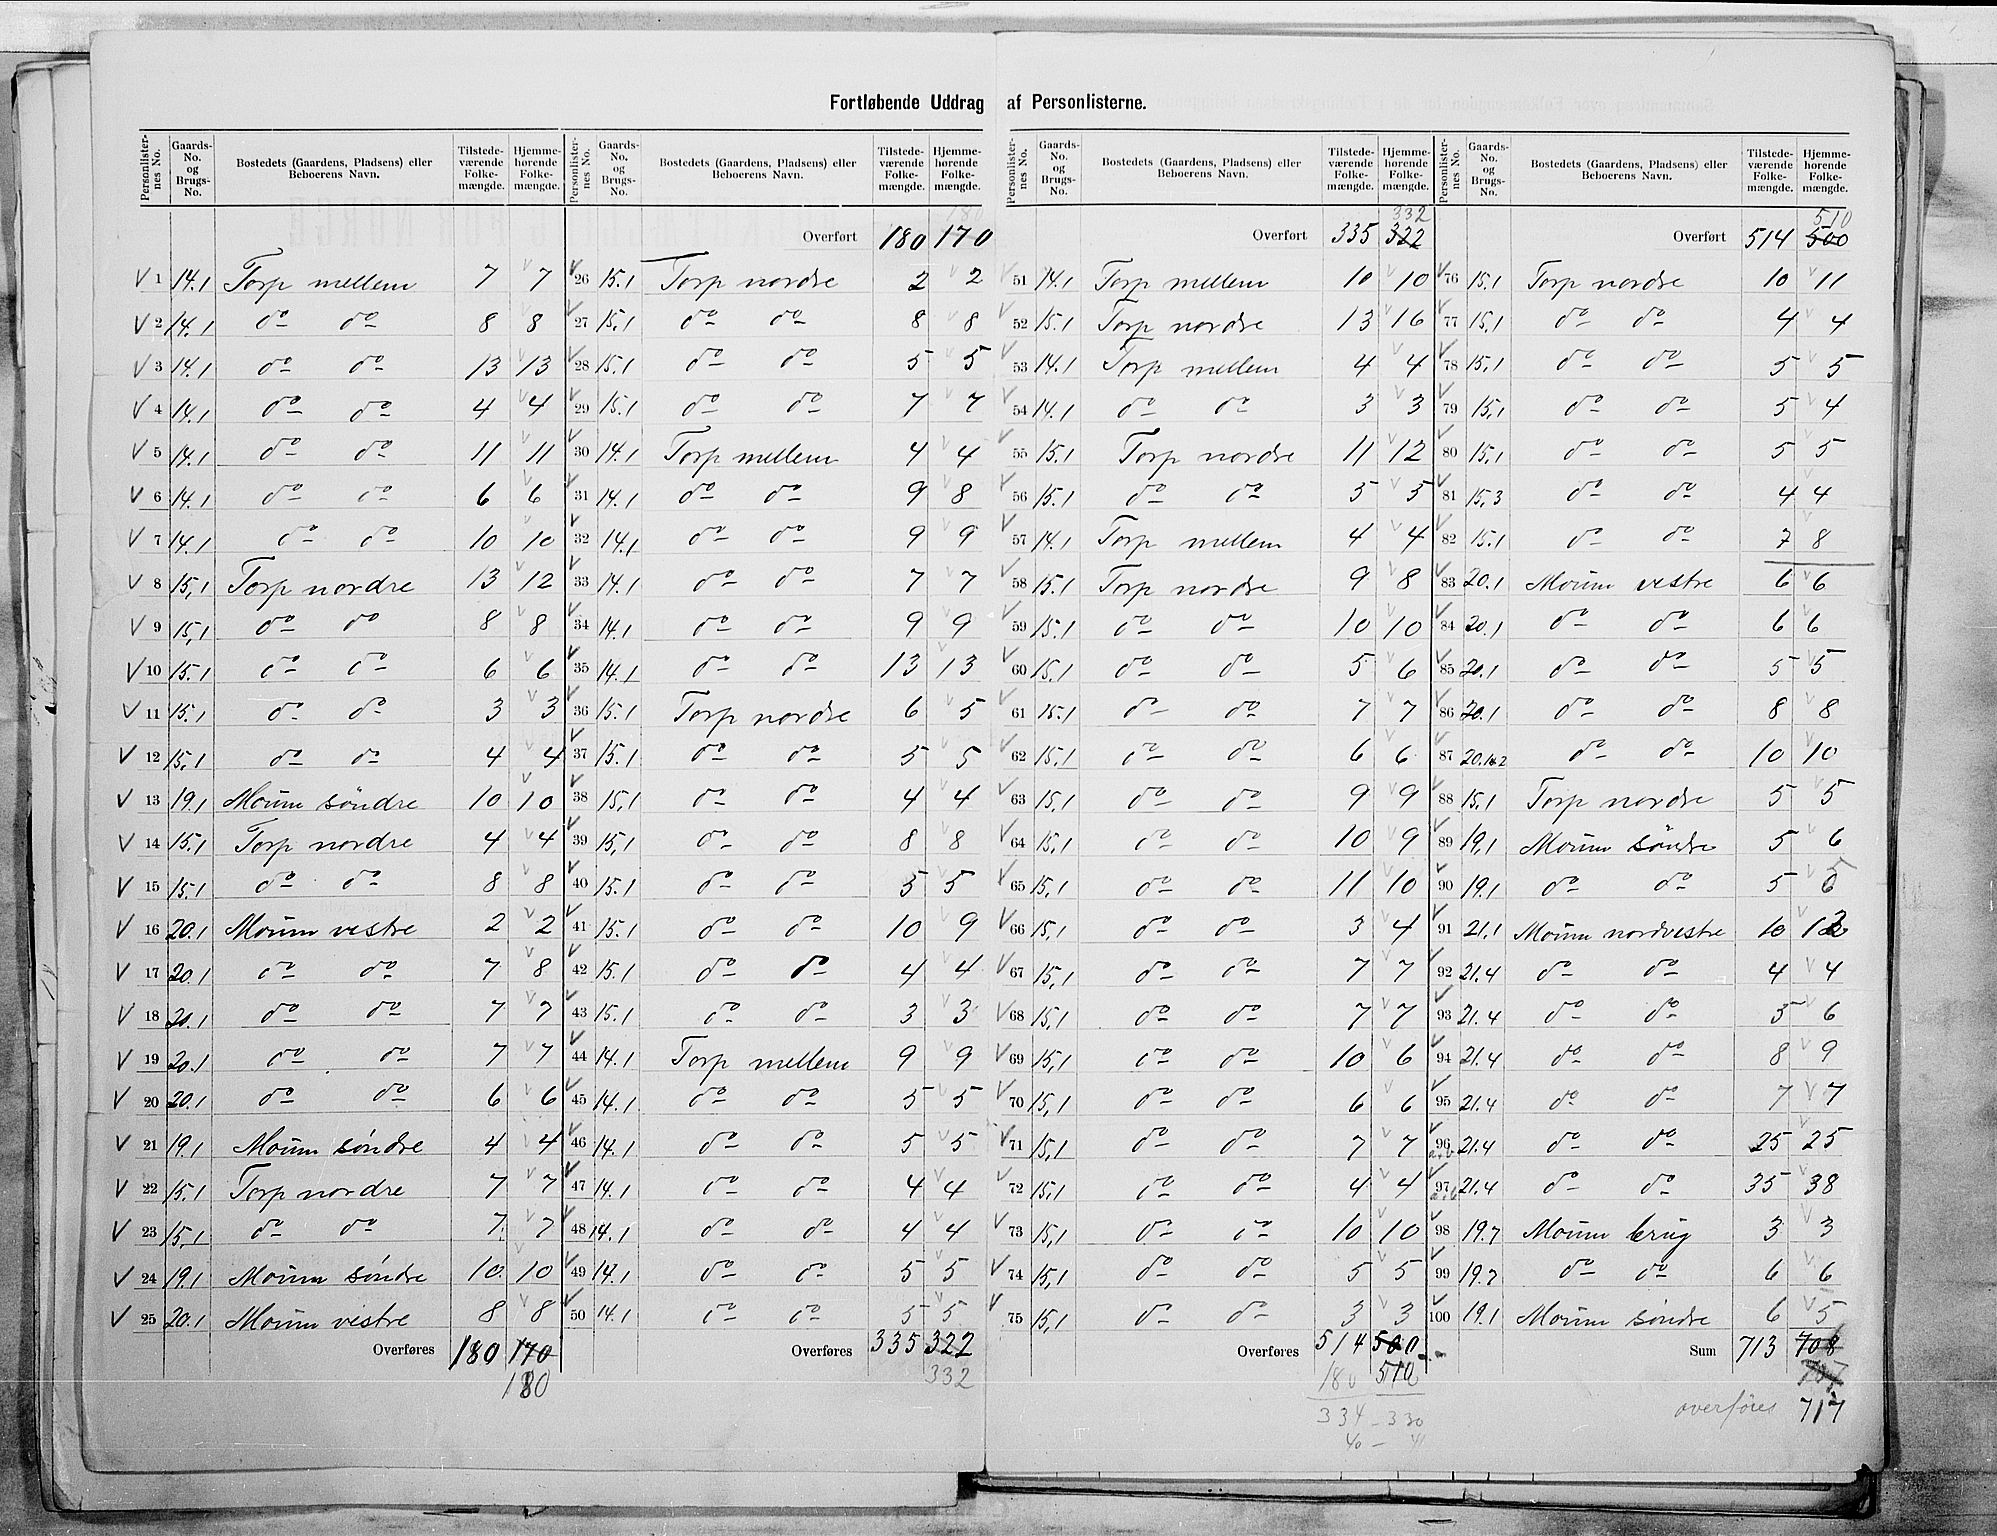 Fortløbende Uddrag af Personlisterne.
Personlister-nes No. | Gaards-No. og Brugs-No. | Bostedets (Gaardens, Pladsens) eller Beboerens Navn. | Tilstede-værende Folke-mængde. | Hjemme-hørende Folke-mængde.
V 1 14.1 Torp mellem 7 V 7
V 2 14.1 do do 8 8
V 3 14.1 do do 13 13
V 4 14.1 do do 4 4
V 5 14.1 do do 11 11
V 6 14.1 do do 6 6
V 7 14.1 do do 10 10
V 8 15,1 Torp nordre 13 12
V 9 15,1 do do 8 8
V 10 15.1 do do 6 6
V 11 15.1 do do 3 3
V 12 15,1 do do 4 4
V 13 19.1 Moum søndre 10 10
V 14 15.1 Torp nordre 4 4
V 15 15.1 do do 8 8
V 16 20.1 Moum vestre 2 2
V 17 20.1 do do 7 8
V 18 20.1 do do 7 7
V 19 20.1 do do 7 7
V 20 20.1 do do 6 6
V 21 19.1 Moum søndre 4 4
V 22 15.1 Torp nordre 7 7
V 23 15,1 do do 7 7
V 24 19.1 Moum søndre 10 10
V 25 20.1 Moum vestre 8 8
Overføres 180 170
180
Personlister-nes No. | Gaards-No. og Brugs-No. | Bostedets (Gaardens, Pladsens) eller Beboerens Navn. | Tilstede-værende Folke-mængde. | Hjemme-hørende Folke-mængde.
180
Overført 180 170
V 26 15.1 Torp nordre 2 2
V 27 15,1 do do 8 8
V 28 15.1 do do 5 5
V 29 15.1 do do 7 7
V 30 14.1 Torp mellem 4 4
V 31 14.1 do do 9 8
V 32 14.1 do do 9 9
V 33 14.1 do do 7 7
V 34 14.1 do do 9 9
V 35 14.1 do do 13 13
V 36 15.1 Torp nordre 6 5
V 37 15.1 do do 5 5
V 38 15,1 do do 4 4
V 39 15,1 do do 8 8
V 40 15.1 do do 5 5
V 41 15.1 do do 10 9
V 42 15.1 do do 4 4
V 43 15.1 do do 3 3
V 44 14.1 Torp mellem 9 9
V 45 14.1 do do 5 5
V 46 14.1 do do 5 5
V 47 14.1 do do 4 4
V 48 14.1 do do 4 4
V 49 14.1 do do 5 5
V 50 14.1 do do 5 5
Overføres 335 322
332
Personlister-nes No. | Gaards-No. og Brugs-No. | Bostedets (Gaardens, Pladsens) eller Beboerens Navn. | Tilstede-værende Folke-mængde. | Hjemme-hørende Folke-mængde.
332
Overført 335 322
V 51 14.1 Torp mellem 10 10
V 52 15.1 Torp nordre 13 16
V 53 14.1 Torp mellem 4 4
V 54 14.1 do do 3 3
V 55 15.1 Torp nordre 11 12
V 56 15.1 do do 5 5
V 57 14.1 Torp mellem 4 4
V 58 15.1 Torp nordre 9 8
V 59 15.1 do do 10 10
V 60 15.1 do do 5 6
V 61 15.1 do do 7 7
V 62 15.1 do do 6 6
V 63 15.1 do do 9 9
V 64 15.1 do do 10 9
V 65 15,1 do do 11 10
V 66 15,1 do do 3 4
V 67 15,1 do do 7 7
V 68 15,1 do do 7 7
V 69 15,1 do do 10 6
V 70 15,1 do do 6 6
V 71 15,1 do do 7 7
V 72 15,1 do do 4 4
V 73 15,1 do do 10 10
V 74 15,1 do do 5 5
V 75 15,1 do do 3 3
Overføres 514 500
180 510
334 - 330
40 - 41
Personlister-nes No. | Gaards-No. og Brugs-No. | Bostedets (Gaardens, Pladsens) eller Beboerens Navn. | Tilstede-værende Folke-mængde. | Hjemme-hørende Folke-mængde.
510
Overført 514 500
V 76 15.1 Torp nordre 10 11
V 77 15,1 do do 4 4
V 78 15,1 do do 5 5
V 79 15,1 do do 5 4
V 80 15,1 do do 5 5
V 81 15,3 do do 4 4
V 82 15.1 do do 7 8
V 83 20.1 Moum vestre 6 6
V 84 20.1 do do 6 6
V 85 20.1 do do 5 5
V 86 20.1 do do 8 8
V 87 20.1&2 do do 10 10
V 88 15.1 Torp nordre 5 5
V 89 19,1 Moum søndre 5 6
V 90 19.1 do do 5 5
V 91 21.1 Moum nordvestre 10 12
V 92 21.4 do do 4 4
V 93 21.4 do do 5 6
V 94 21.4 do do 8 9
V 95 21.4 do do 7 7
V 96 a.b 21.4 do do 25 25
V 97 a.b 21.4 do do 35 38
V 98 19.7 Moum brug 3 3
V 99 19.7 do do 6 6
V 100 19.1 Moum søndre 6 5
Sum 713 708
707
overføres 717